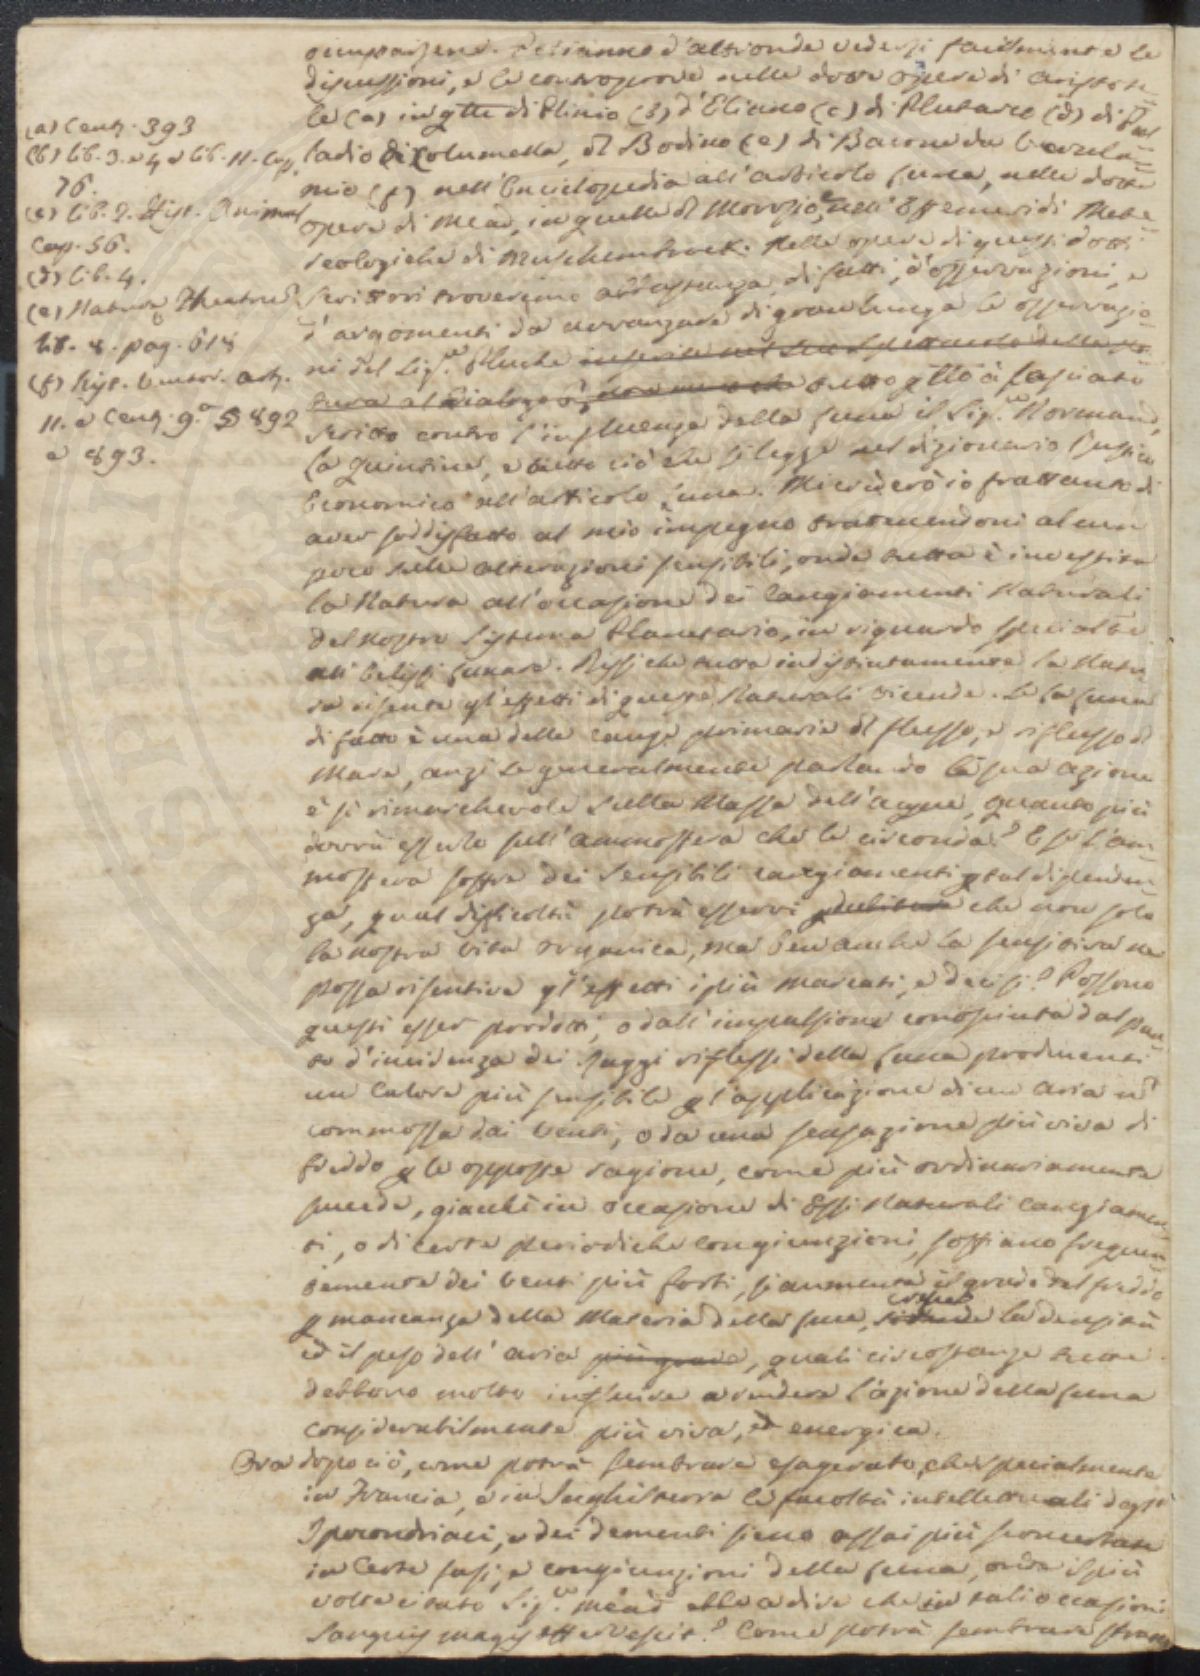 (a) Cent. 393
(b) lib. 3. e 4 e lib. 11. Cap.
76.
(c) lib. 9. Hist. Animal
Cap. 56.
(d) lib. 4.
(e) Naturę Theatrū
lib. 8. pag. 618
(f) Hist. Ventor. art.
11. e Cent. 9.ª 892
e 893.
d'altronde vedersi facilmente le
discussioni, e le controprove nelle dotte opere di Aristote-
le (a) in qlle di Plinio (b) d'Eliano (c) di Plutarco (d) di Pal-
ladio di Columella, di Bodino (e) di Bacone da Verula-
mio (f) nell'Enciclopedia all'articolo Luna, nelle dotte
opere di Mead, in quelle di nell'Effemeridi Mete-
reologiche di Muschembroek. Nelle opere di questi dotti
Scrittori troveremo abbastanza di fatti, d'osservazioni, e
d'argomenti da avvanzare di gran lunga le osservazio-
ni del Sig.re Pluche inserite nel suo Spettacolo della Na-
tura al Dialogo tutto qllo à lasciato
scritto contro l'influenza della Luna il Sig.re Normand,
La Quintine, e tutto ciò che si legge nel dizionario
Economico all'articolo Luna. Mi crederò io frattanto di
aver soddisfatto al mio impegno trattenendomi alcun
poco sulle alterazioni sensibili, onde tutta è investita
la Natura all'occasione dei Cangiamenti Naturali
del nostro Sistema Planetario, in riguardo specialte
all'Eclissi Lunare. Dissi che tutta indistintamente la Natu-
ra risente gl'effetti di queste Naturali vicende. Se la Luna
di fatto è una delle cause primarie del flusso, e riflusso del
Mare, anzi se generalmente parlando la sua azione
è sì rimarchevole sulla Massa dell'acque, quanto più
dovrà esserlo sull'ammosfera che le circonda? E se l'am-
mosfera soffre dei sensibili cangiamenti p tal dipenden-
za, qual difficoltà potrà esservi p dubitare che non solo
la nostra vita organica, ma ben anche la sensitiva ne
possa risentire gl'effetti i più marcati, e decisi? Possono
questi esser prodotti, o dall'impulsione conosciuta dal pun-
to d'incidenza dei Raggi riflessi della Luna producenti
un Calore più sensibile p l'applicazione di un aria nō
commossa dai venti, o da una sensazione più viva di
freddo p le opposte ragione, come più ordinariamente
succede, giacchè in occasione di Essi Naturali Cangiamen-
ti, o di certe periodiche congiunzioni, soffiano frequen-
temente dei venti più forti, si aumenta il grado del freddo
p mancanza della Materia della luce, cresce la densità
ed il peso dell'aria più grave, quali circostanze tutte
debbono molto influire a rendere l'azione della Luna
considerabilmente più viva, ed energica.
Ora dopo ciò, come potrà sembrare esagerato, che specialmente
in Francia, e in Inghilterra le facoltà intellettuali degl'
Ipocondriaci, e dei dementi sieno assai più sconcertate
in certe fasi, e congiunzioni della Luna, onde il più
volte citato Sig.re Mead ebbe a dire che in tali occasioni
Sanguis magis effervescit? Come potrà sembrare stran